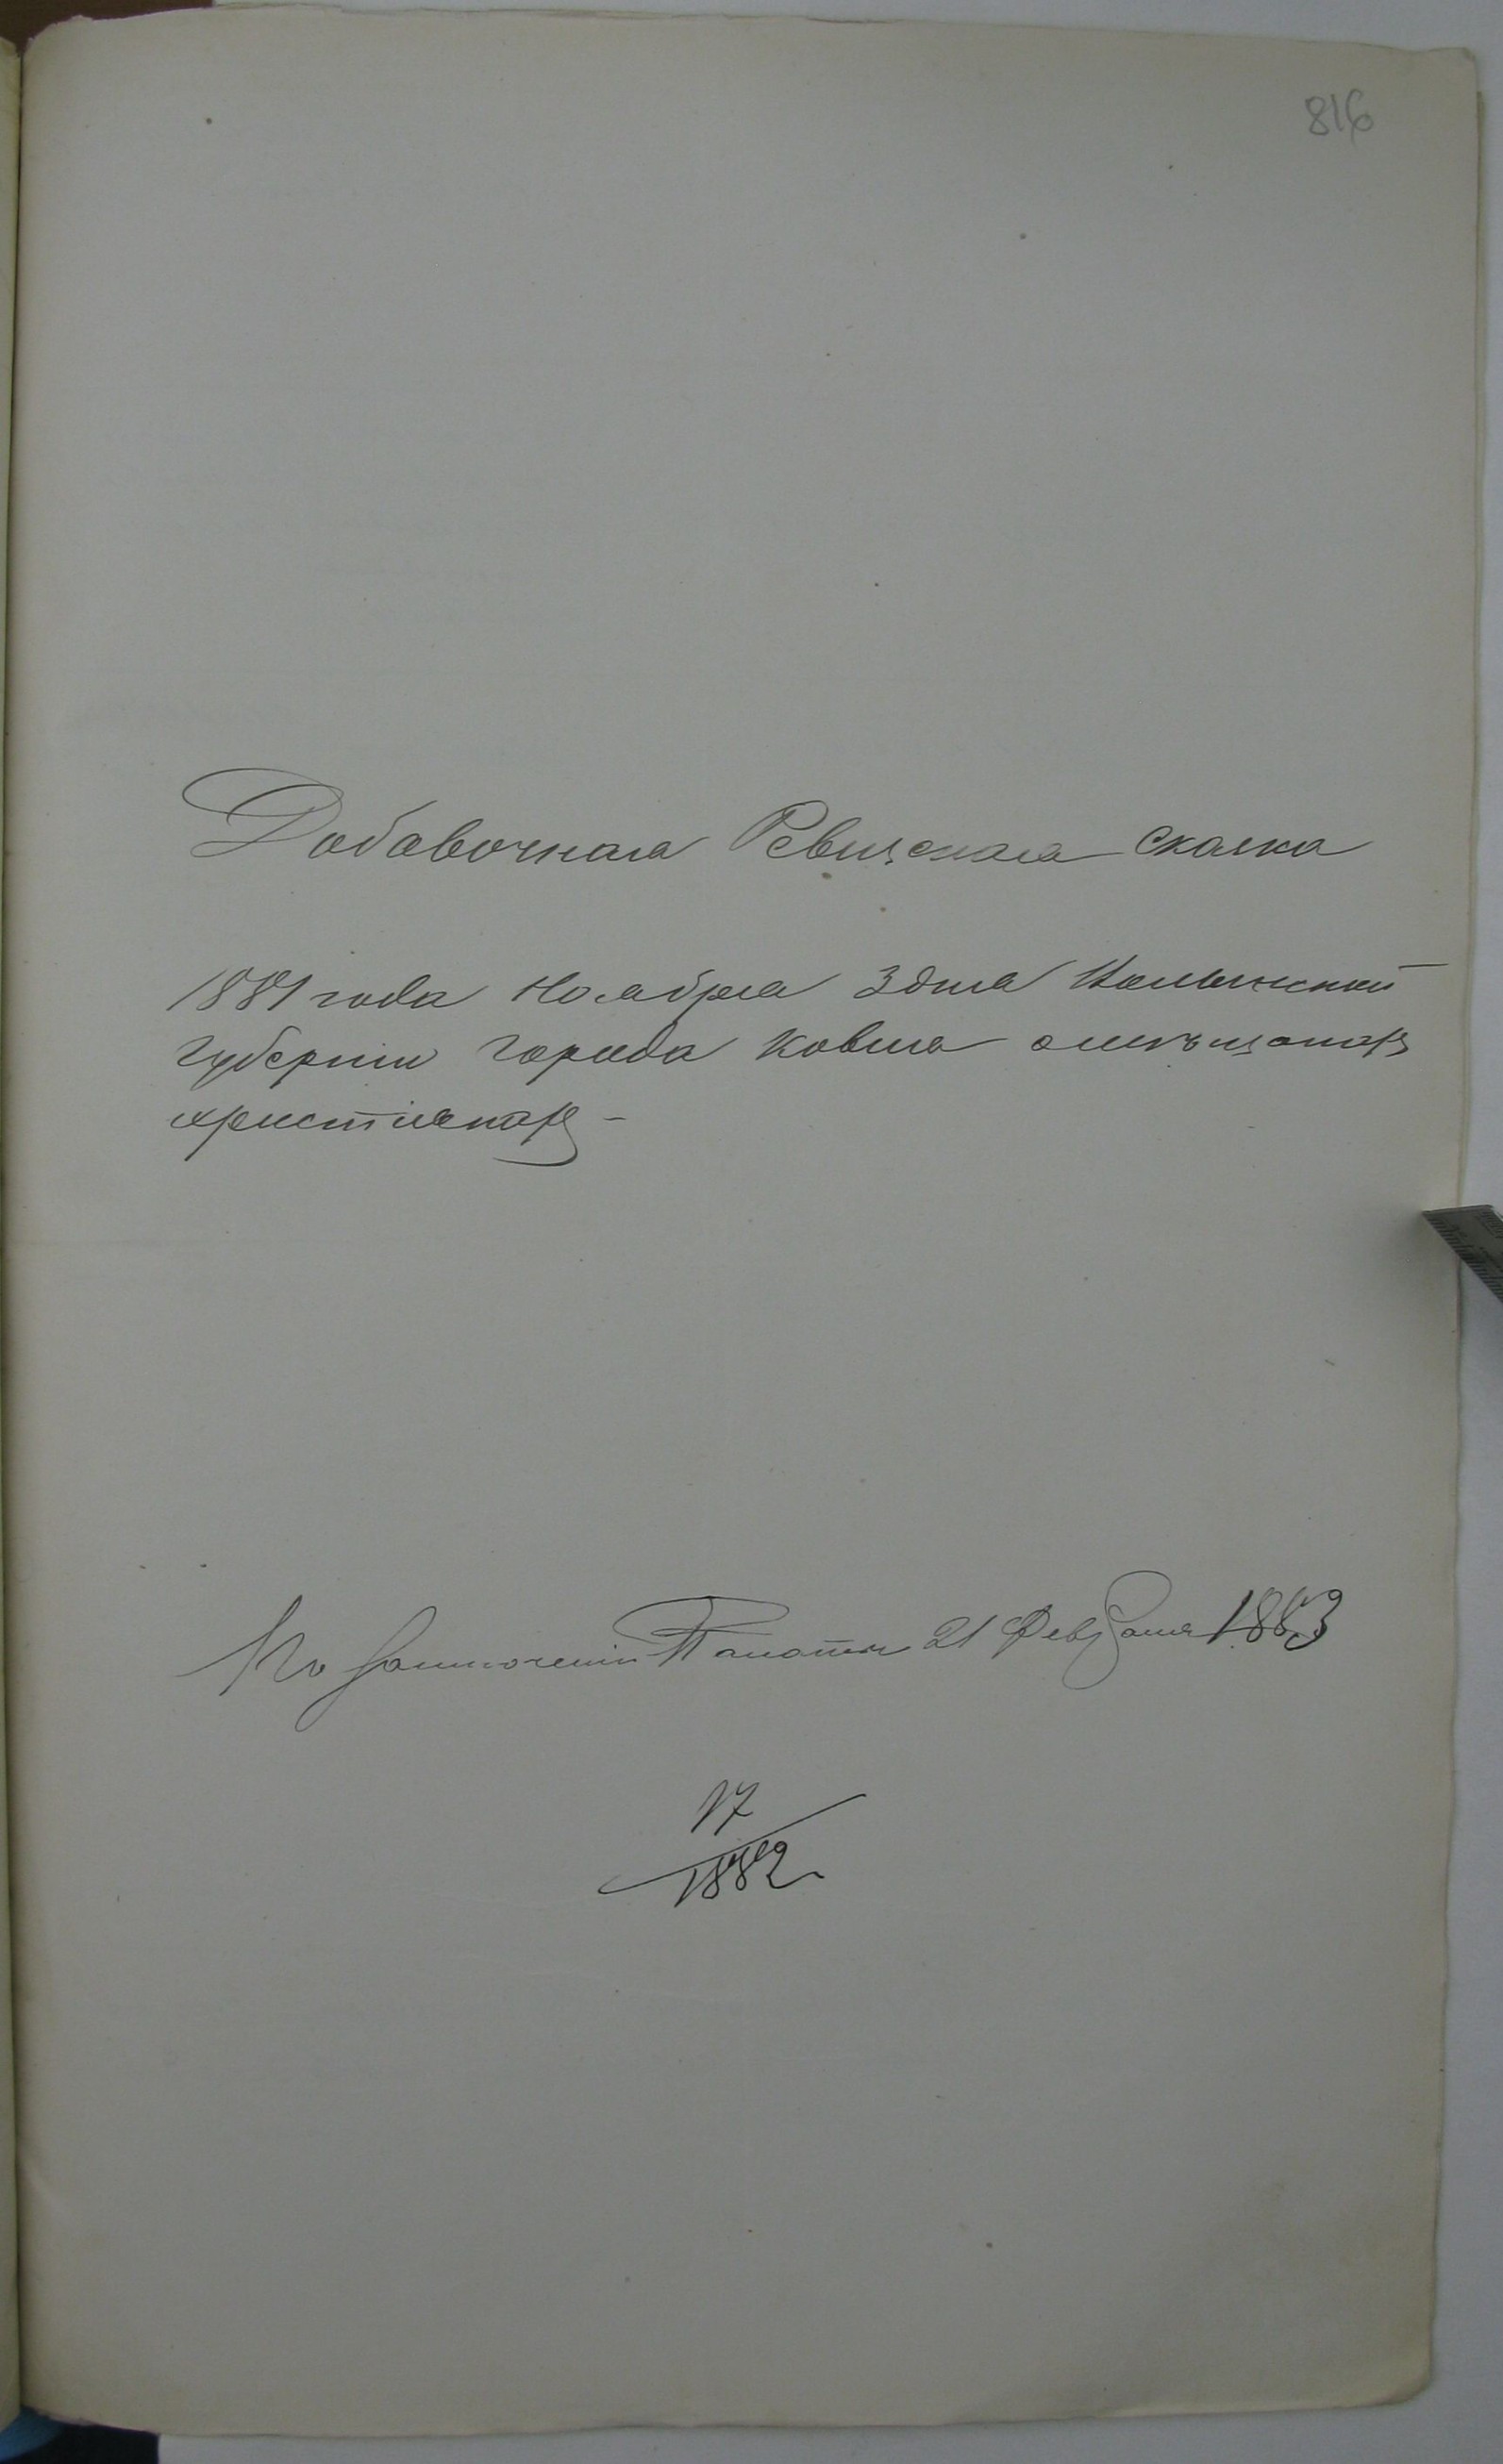 816
Добавочная Ревизская сказка
1881 года Ноября 3 дня Волынской
губернiи города Ковля о мѣщанахъ
христiанахъ -
По заключенiю Палаты 21 Февраля 1883
17
1882